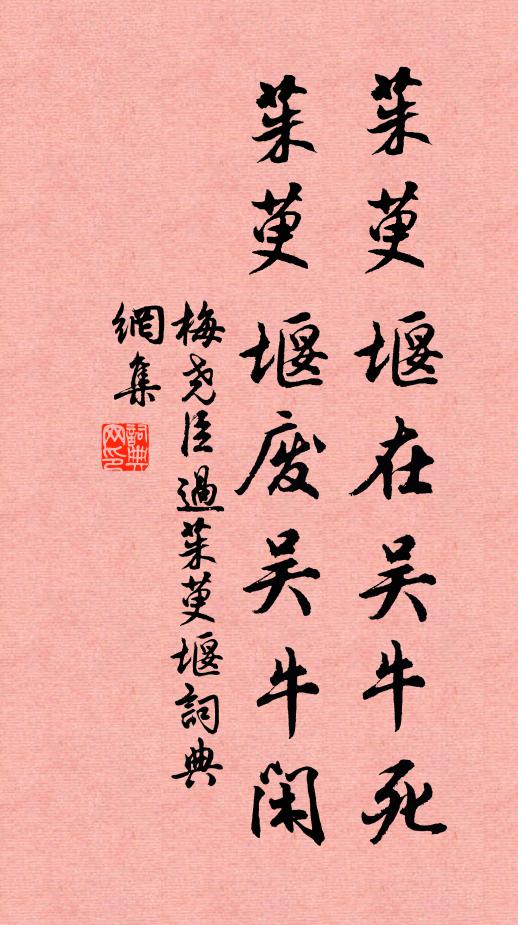 茱萸堰在吴牛死
茱萸堰废吴牛闲
梅尧臣過茱萸堰詞典
網集
詞典
网印